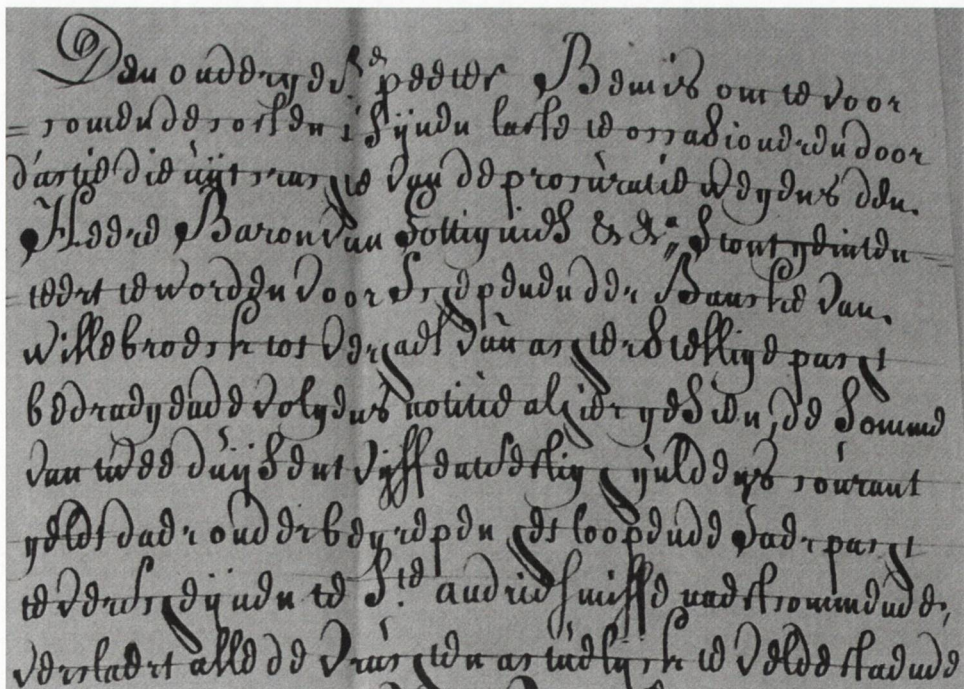 Den onderges.de peeter Bemis om te voor
= comende costen i sijnen laste te occasioneren door
d'actie die uijt cracht van de procuratie wegens den
Heere Baron van Cottignies &c &c.a Stont geinten
teert te worden voor Schepenen der Bancke van
Willebroeck tot verhael van achterstellige pacht
bedragende volgens notitie alhier gesien, de somme
van twee duijsent vijff entsestig guldens courant
gelt daer onder begrepen het loopende Jaer pacht
te verschijnen te S.te andries misse naestcommende,
verclaert alle de vruchten actuelijck te velde staende